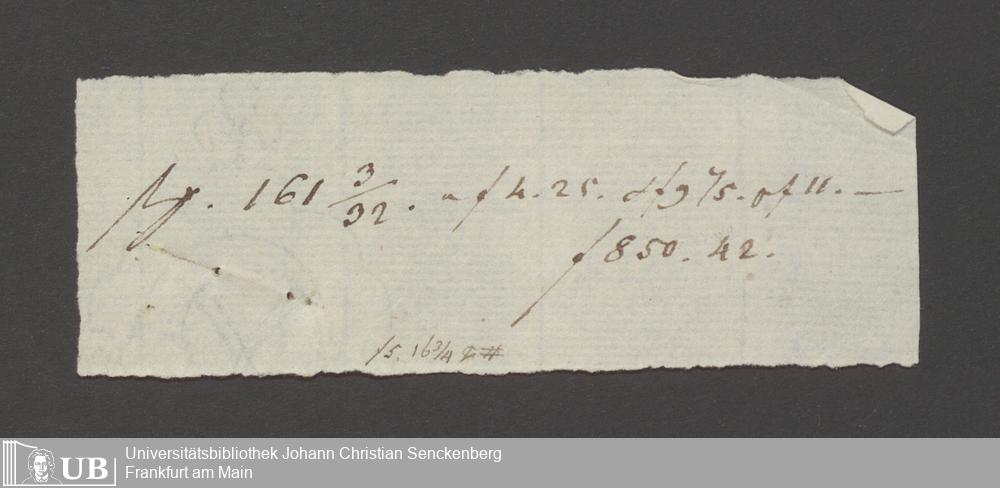 161 3/32. a f 4. 25.
f 850. 42.
f 5. 16 3/4
Universitätsbibliothek Johann Christian Senckenberg
Frankfurt am Main
UB